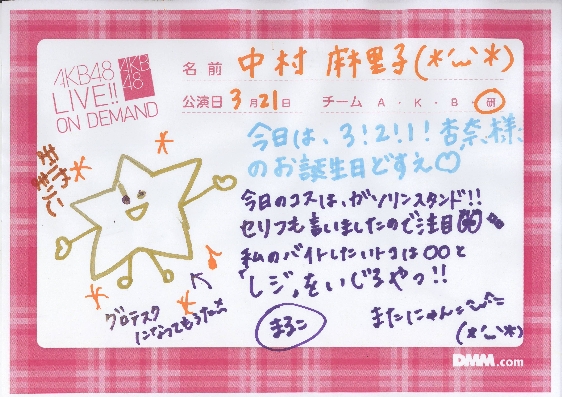 AKB48
LIVE!!
ON DEMAND
AKB
48
名前 中村 麻里子(*´ω`*)
公演日 3月21日 チーム A・K・B・研
今日は、3!2!1!杏奈様
のお誕生日どすえ♡
今日のコスは、ガソリンスタンド!!
セリフも言いましたので注目
私のバイトしたいトコは○○と
「レジ」をいじるやつ!!
グロテスク
になってもうた
まりこ
またにゃん
(*´ω`*)
DMM.com